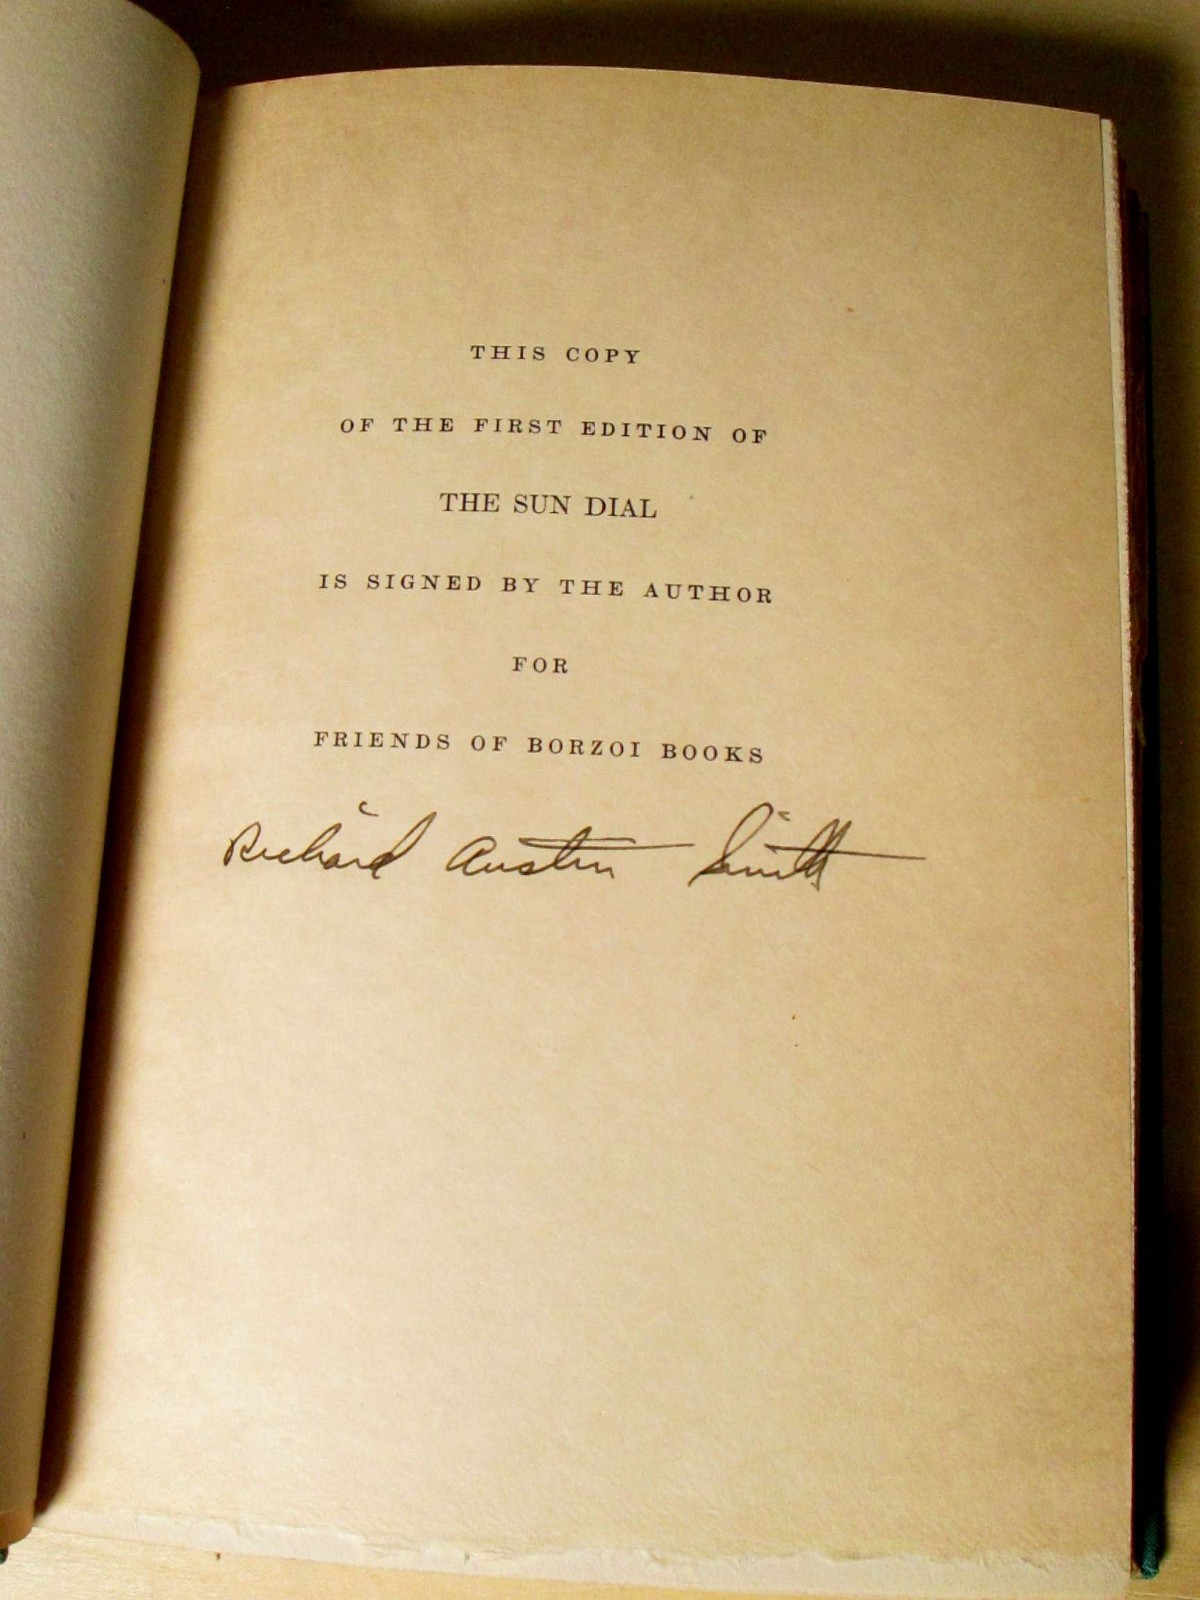 THIS COPY
OF THE FIRST EDITION OF
THE SUN DIAL
IS SIGNED BY THE AUTHOR
FOR
FRIENDS OF BORZOI BOOKS
Richard Austin Smith